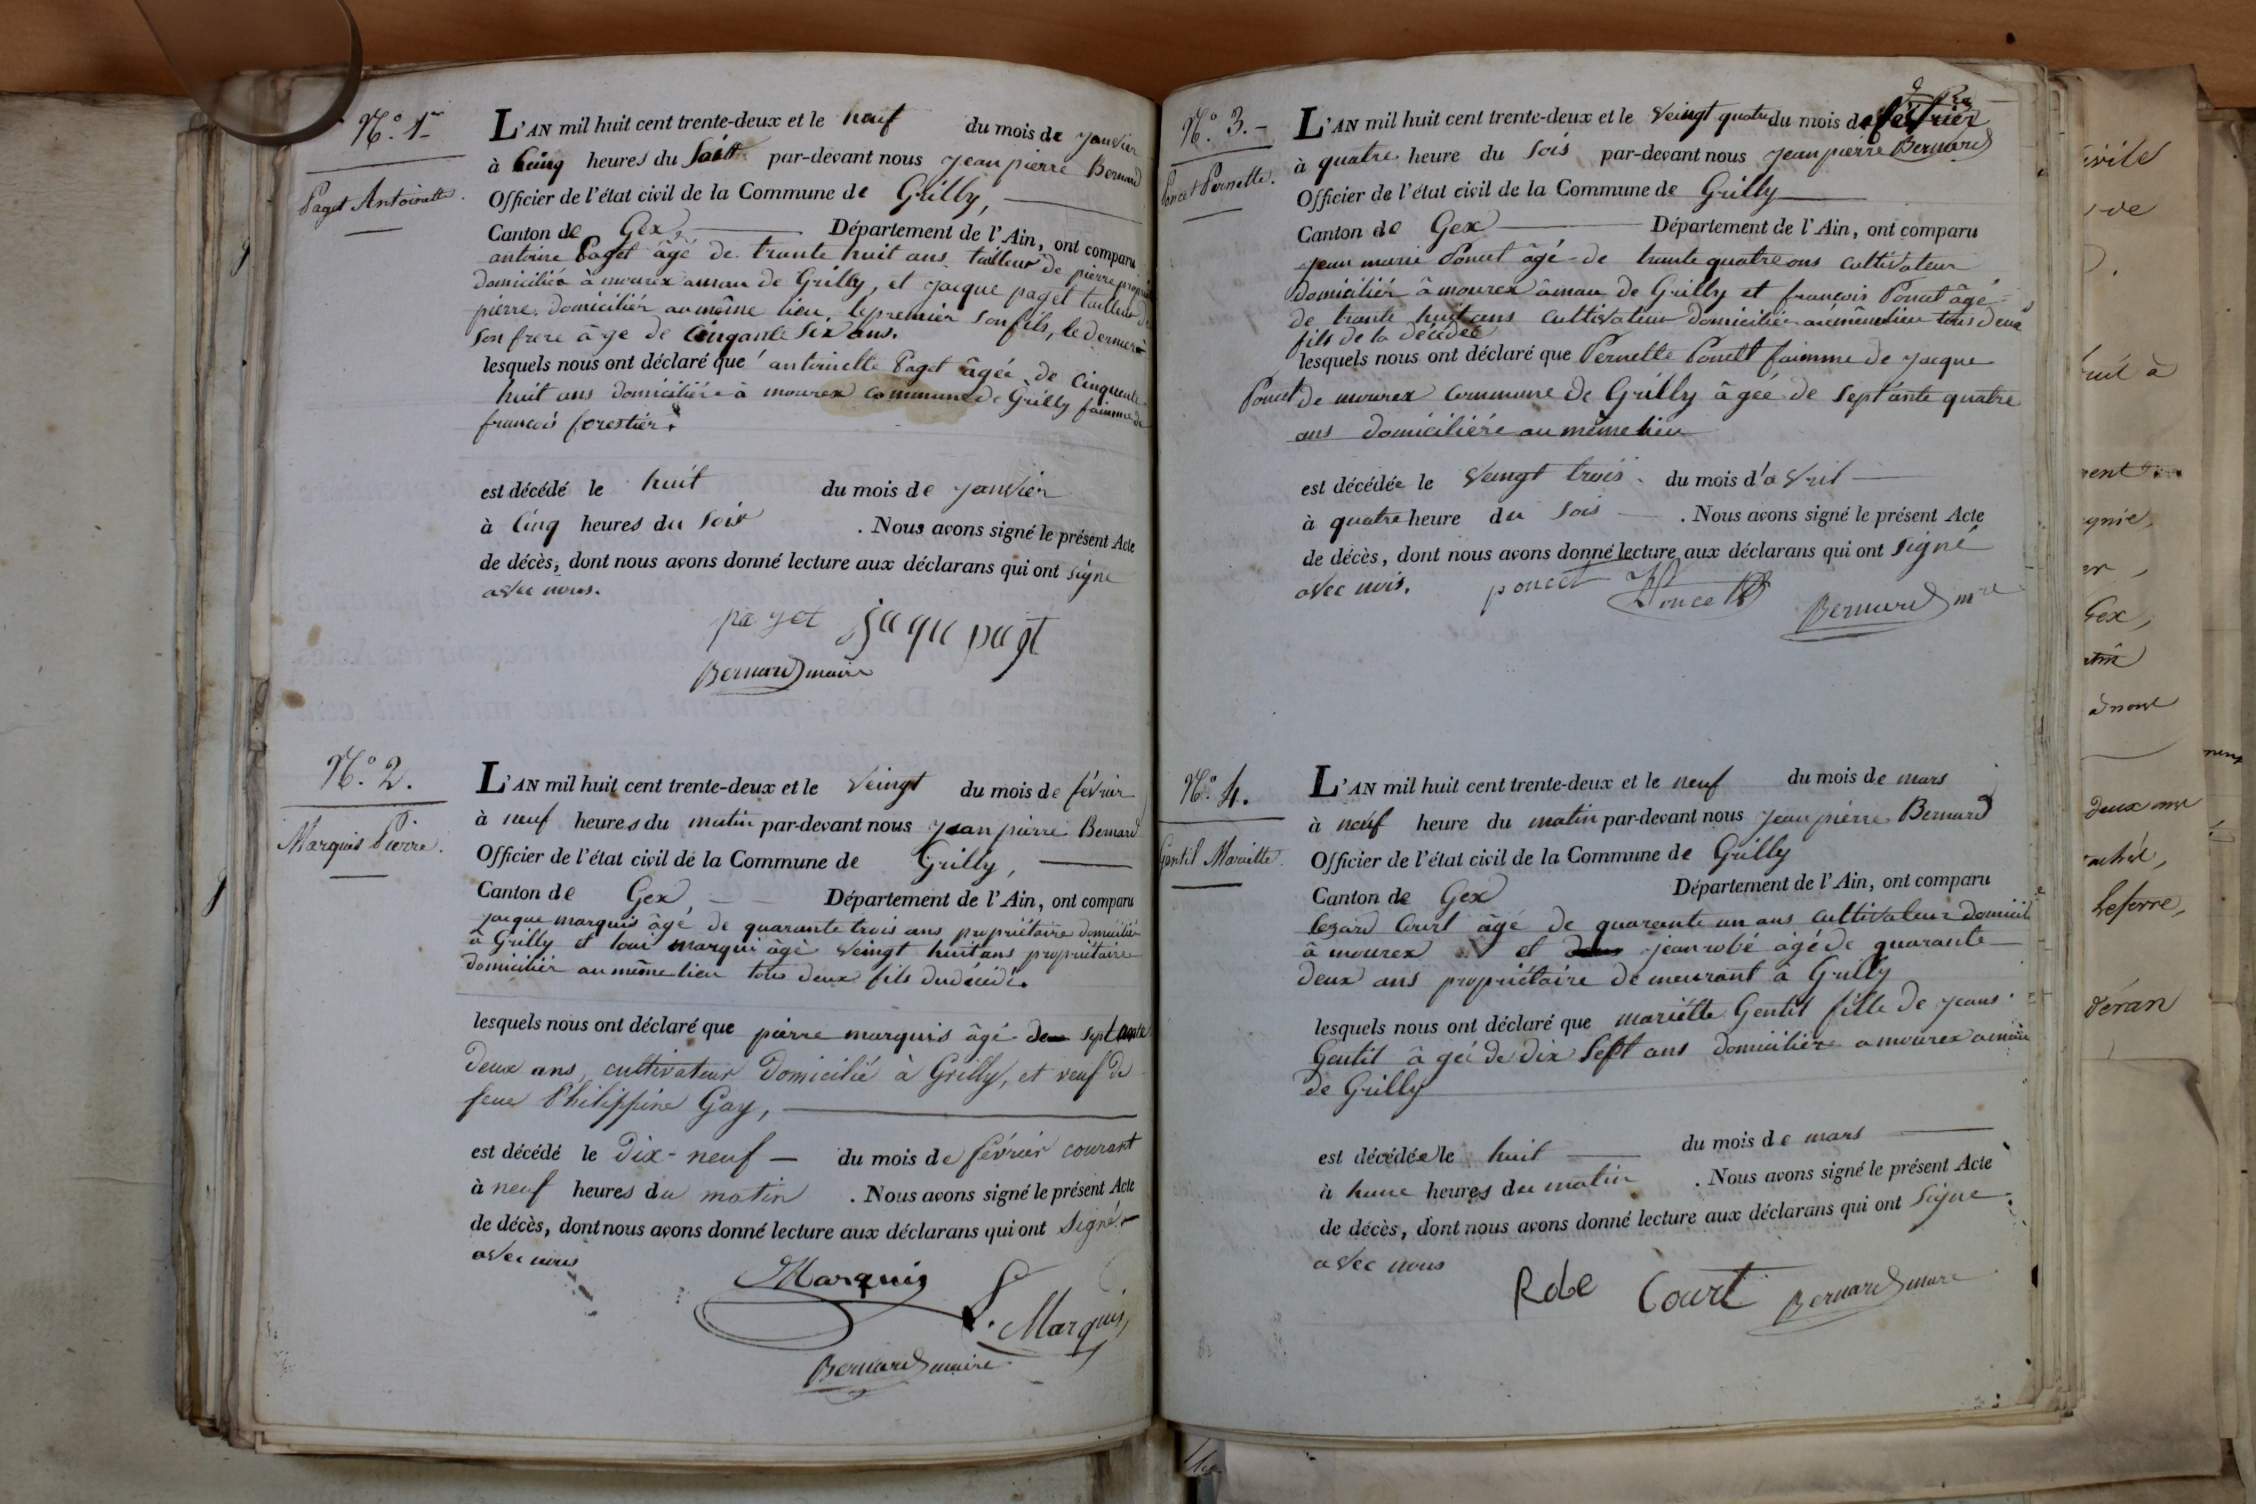 N.o 1er
Paget Antoinette.
L'AN mil huit cent trente-deux et le neuf du mois de janvier
à cinq heures du soir par-devant nous jean pierre Bernard
Officier de l'état civil de la Commune de Grilly,
Canton de Gex, Département de l'Ain, ont comparu
antoine Paget âgé de trante huit ans tailleur de pierre
domiciliér à mourex de Grilly, et jacque paget tailleur de
pierre domiciliér au même lieu, le premier son fils, le dernier
son frere âge de cinqante six ans.
lesquels nous ont déclaré que antoinette Paget âgée de cinquente
huit ans domiciliére à mourex commune de Grilly faimme de
francois forestier.
est décédé le huit du mois de janvier
à cinq heures du soir . Nous avons signé le présent Acte
de décès, dont nous avons donné lecture aux déclarans qui ont signe
avec nous.
paget jaque pagt
Bernard maire
N.o 2.
Marquis Pierre.
L'AN mil huit cent trente-deux et le veingt du mois de février
à neuf heures du matin par-devant nous jean pierre Bernard
Officier de l'état civil de la Commune de Grilly,
Canton de Gex, Département de l'Ain, ont comparu
jacque marquis âgé de quarante trois ans propriétaire domicilié
à Grilly et loui marqui âgé veingt huit ans propriétaire
domiciliér au même lieu tous deux fils du décédé.
lesquels nous ont déclaré que pierre marquis âgé de septante
deux ans, cultivateur domicilié à Grilly, et veuf de
feue Philippine Gay,
est décédé le dix-neuf du mois de février courant
à neuf heures du matin . Nous avons signé le présent Acte
de décès, dont nous avons donné lecture aux déclarans qui ont signé
avec nous
Marquis
L. Marquis
Bernard maire
N.o 3.
Poncet Pernette.
L'AN mil huit cent trente-deux et le veingt quatre du mois de février
à quatre heure du sois par-devant nous jean pierre Bernard
Officier de l'état civil de la Commune de Grilly
Canton de Gex Département de l'Ain, ont comparu
jean marie Poncet âgé de trante quatre ans cultivateur
domiciliér à mourex de Grilly et francois Poncet âgé
de trante huit ans cultivateur domiciliér au même lieu tous deux
fils de la décédée
lesquels nous ont déclaré que Pernette Poncet faimme de jacque
Poncet de mourex commune de Grilly âgée de septante quatre
ans domiciliére au même lieu
est décédée le veingt trois du mois d'avril
à quatre heure du sois . Nous avons signé le présent Acte
de décès, dont nous avons donné lecture aux déclarans qui ont signé
avec nois.
poncet Poncet Bernard mre
N.o 4.
Gentil Mariette.
L'AN mil huit cent trente-deux et le neuf du mois de mars
à neuf heure du matin par-devant nous jean pierre Bernard
Officier de l'état civil de la Commune de Grilly
Canton de Gex Département de l'Ain, ont comparu
lezard Court âgé de quarante un ans cultivateur domicil
à mourex et jean robé âgé de quarante
deux ans propriétaire demeurant a Grilly
lesquels nous ont déclaré que mariétte Gentil fille de jeans
Gentil âgée de dix sept ans domiciliére a mourex
de Grilly
est décédée le huit du mois de mars
à hune heures du matin . Nous avons signé le présent Acte
de décès, dont nous avons donné lecture aux déclarans qui ont signe
avec nous
Robe Court Bernard maire